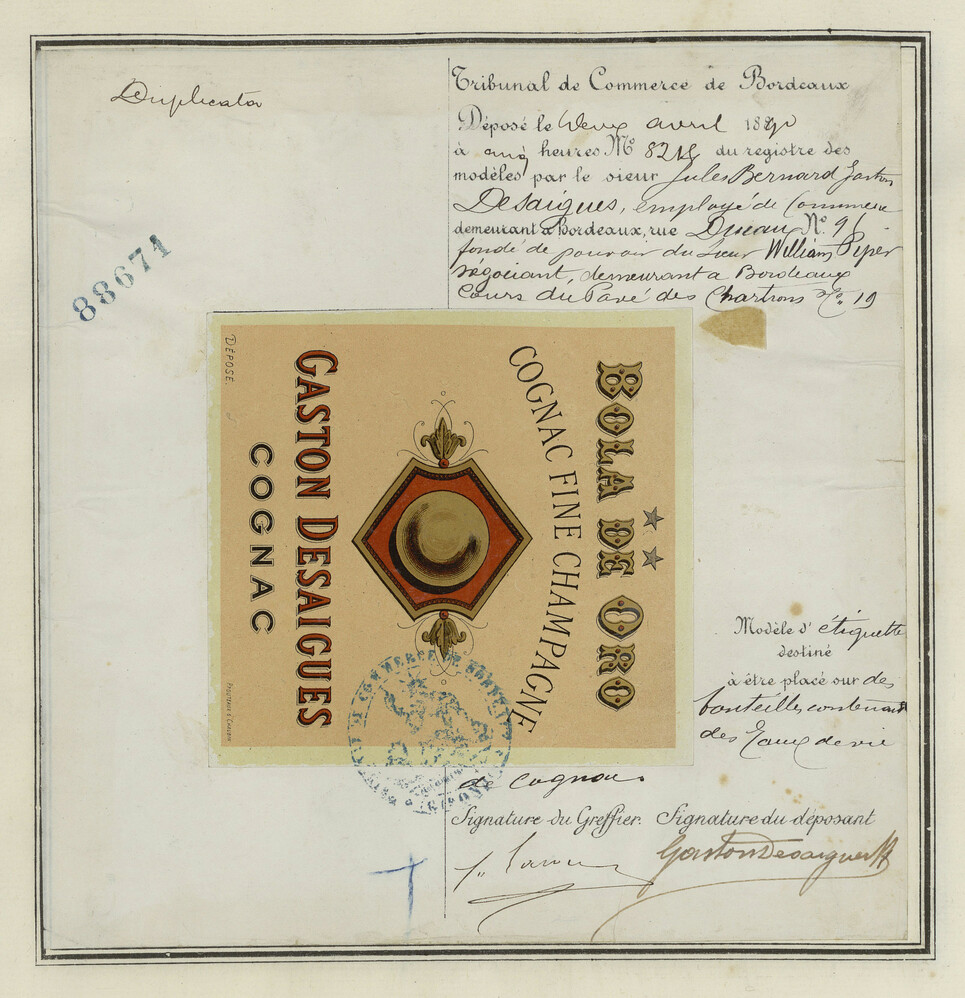 Duplicata
Tribunal de Commerce de Bordeaux
Déposé le deux avril 1890
à cinq heures No 8218 du registre des
modèles par le sieur Jules Bernard Gaston
Desaigues, employé de Commerce
demeurant à Bordeaux, rue No. 9
fondé de pouvoir du Sieur William Piper
négociant, demeurant à Bordeaux
Cours du Pavé des Chartrons No. 19
88671
BOLA DE ORO
COGNAC FINE CHAMPAGNE
GASTON DESAIGUES
COGNAC
DÉPOSÉ.
Modèle d'étiquette
destiné
à être placé sur des
bouteilles contenant
des Eaux de vie
de Cognac
Signature du Greffier. Signature du déposant
Gaston Desaigues